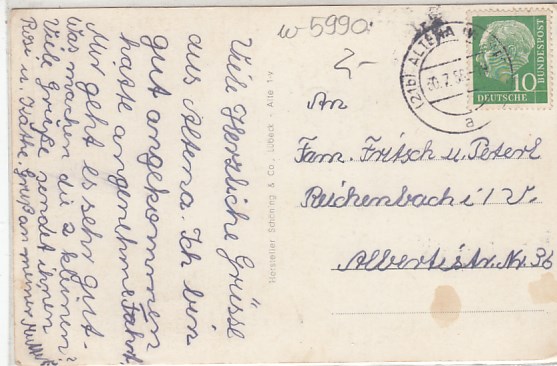 w 5990
2-
Viele Herzliche Grüsse
aus Altena. Ich bin
gut angekommen
hatte angenehme Fahrt.
Mir geht es sehr gut-
was machen die 2 kleinen?
Viele Grüße sendet ihnen
Rosi u. Käthe. Gruß an meine Mutter
Hersteller Schöning & Co., Lübeck - Alte 1-v
(21b) ALTENA
30.7.58
a
10
DEUTSCHE
BUNDESPOST
An
Fam. Fritsch u. Peterl
Reichenbach i/V.
Albertistr. Nr. 36